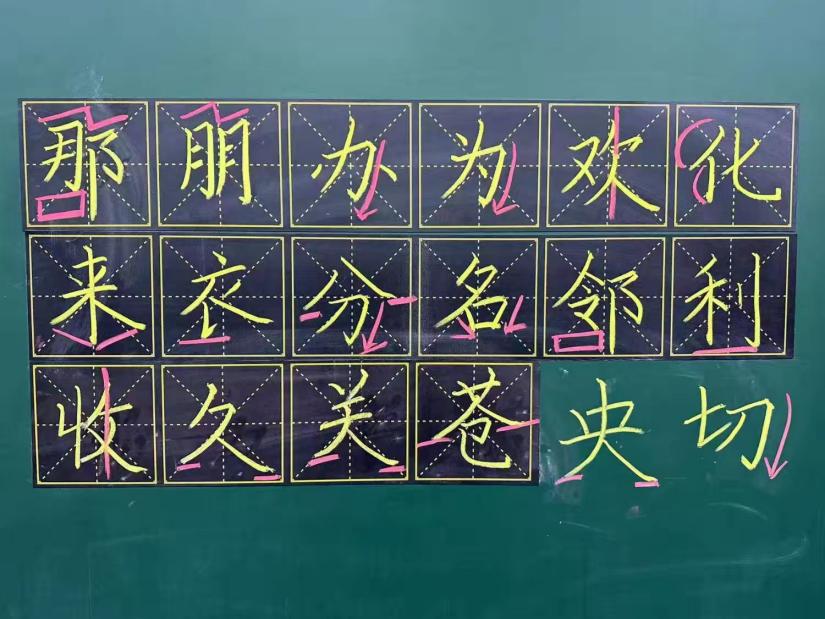 那朋办为欢化
来衣分名邻利
收久关苍央切